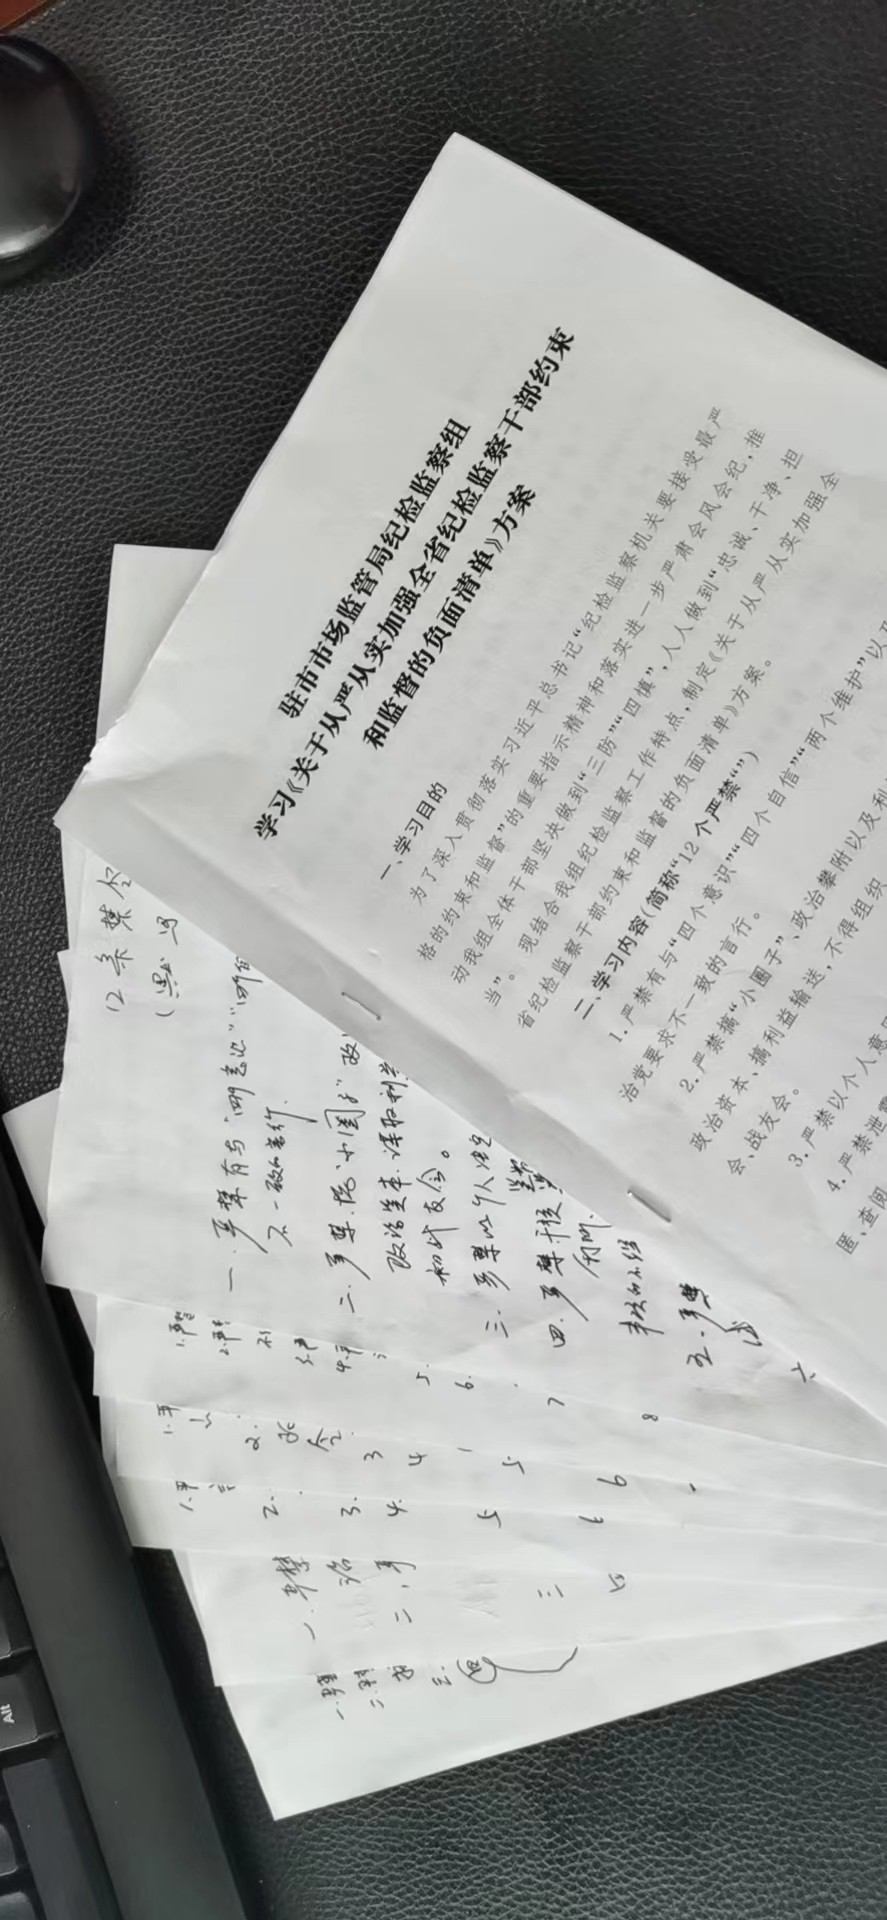 驻市市场监管局纪检监察组
学习《关于从严从实加强全省纪检监察干部约束
和监督的负面清单》方案
一、学习目的
为了深入贯彻落实习近平总书记“纪检监察机关要接受最严
格的约束和监督”的重要指示精神和落实进一步严肃会风会纪，推
动我组全体干部坚决做到“三防”“四慎”，人人做到“忠诚、干净、担
当”。现结合我组纪检监察工作特点，制定《关于从严从实加强全
省纪检监察干部约束和监督的负面清单》方案。
二、学习内容（简称“12个严禁“）
1. 严禁有与“四个意识”“四个自信”“两个维护”以及
治党要求不一致的言行。
2. 严禁搞“小圈子”、政治攀附以及利
政治资本、搞利益输送，不得组织
会、战友会。
3. 严禁以个人意见
4. 严禁泄露
匿、查阅
12条禁令
一、严禁有与“四个意识”“四个自
不一致的言行.
二、严禁、搞“小圈子”政
政治资本、谋取利益
和战友会。
三、严禁以个人意见
四、严禁干预
五、严禁
六
1.严禁
2.严禁
4.严
5.
6.
7
8
1.严
2.
会.
3
4
5
6
1.严
2.
3.
4.
5
6
一、严禁
治
二、严
三
四
一、严禁
二、严禁
三.
四